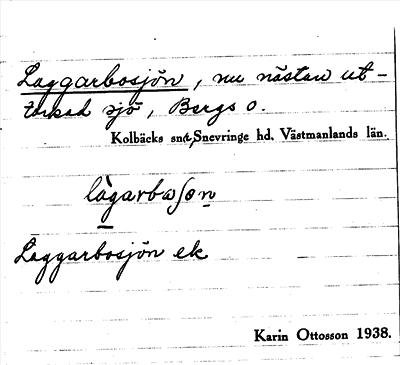 Laggarbosjön, nu nästan ut-
torkad sjö, Bergs o.
Kolbäcks sn, Snevringe hd, Västmanlands län.
làgarbωʃøn
Laggarbosjön ek
Karin Ottosson 1938.